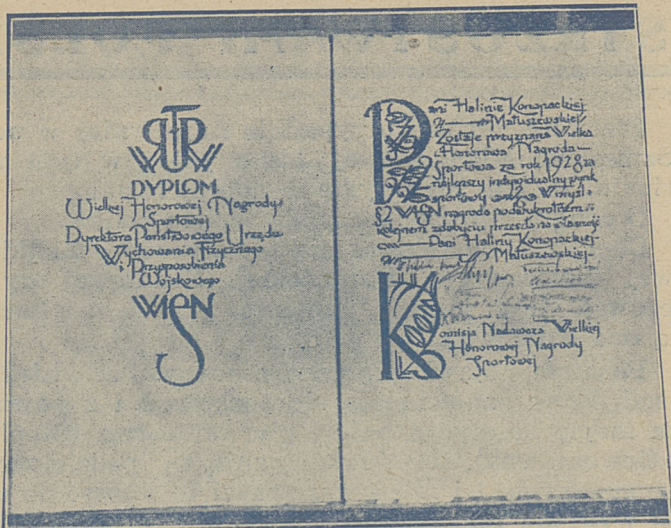 DYPLOM
Wielkiej Honorowej Nagrody
Sportowej
Dyrektora Państwowego Urzędu
Wychowania Fizycznego
i Przysposobienia
Wojskowego
WHSN
Pani Halinie Konopackiej
Matuszewskiej
Zostaje przyznana Wielka
Honorowa Nagroda
Sportowa za rok 1928 za
najlepszy indywidualny wynik
sportowy W myśl
§2 nagroda po dwukrotnem
kolejnem zdobyciu przeszła na własność
Pani Haliny Konopackiej
Matuszewskiej
Komisja Nadawcza Wielkiej
Honorowej Nagrody
Sportowej